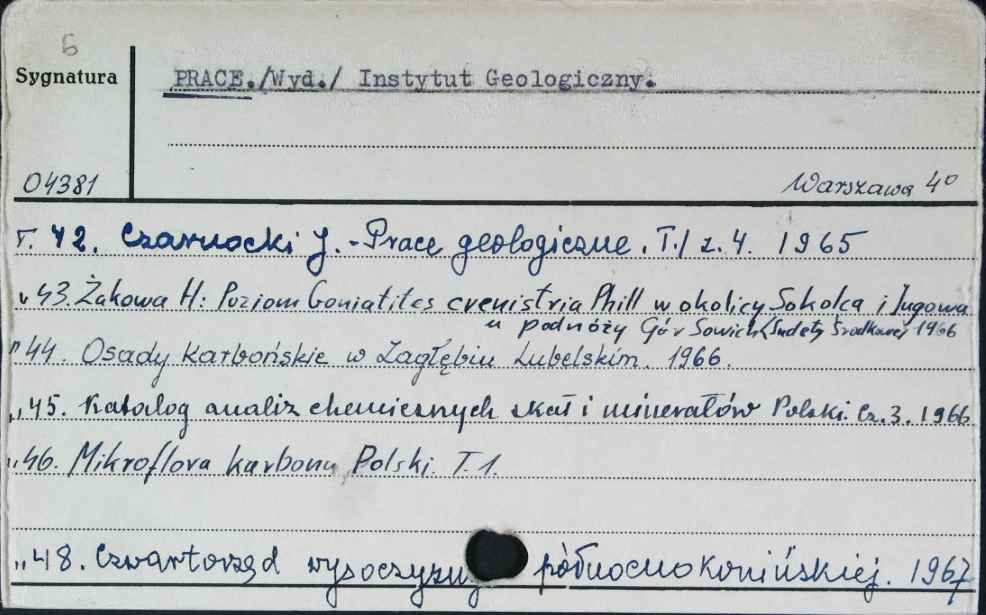 5
Sygnatura
PRACE./Wyd./ Instytut Geologiczny.
04381
Warszawa 4°
T. 42. Czarnocki J. - Prace geologiczne. T./ z. 4. 1965
" 43. Żakowa H: Poziom Goniatites crenistria Phill w okolicy Sokolca i Jugowa
u podnóży Gór Sowich (Sudety Środkowe) 1966
" 44. Osady karbońskie w Zagłębiu Lubelskim. 1966.
" 45. Katalog analiz chemicznych skał i minerałów Polski. Cz. 3. 1966
" 46. Mikroflora karbonu Polski. T. 1.
" 48. Czwartorzęd wysoczyzny północno konińskiej. 1967